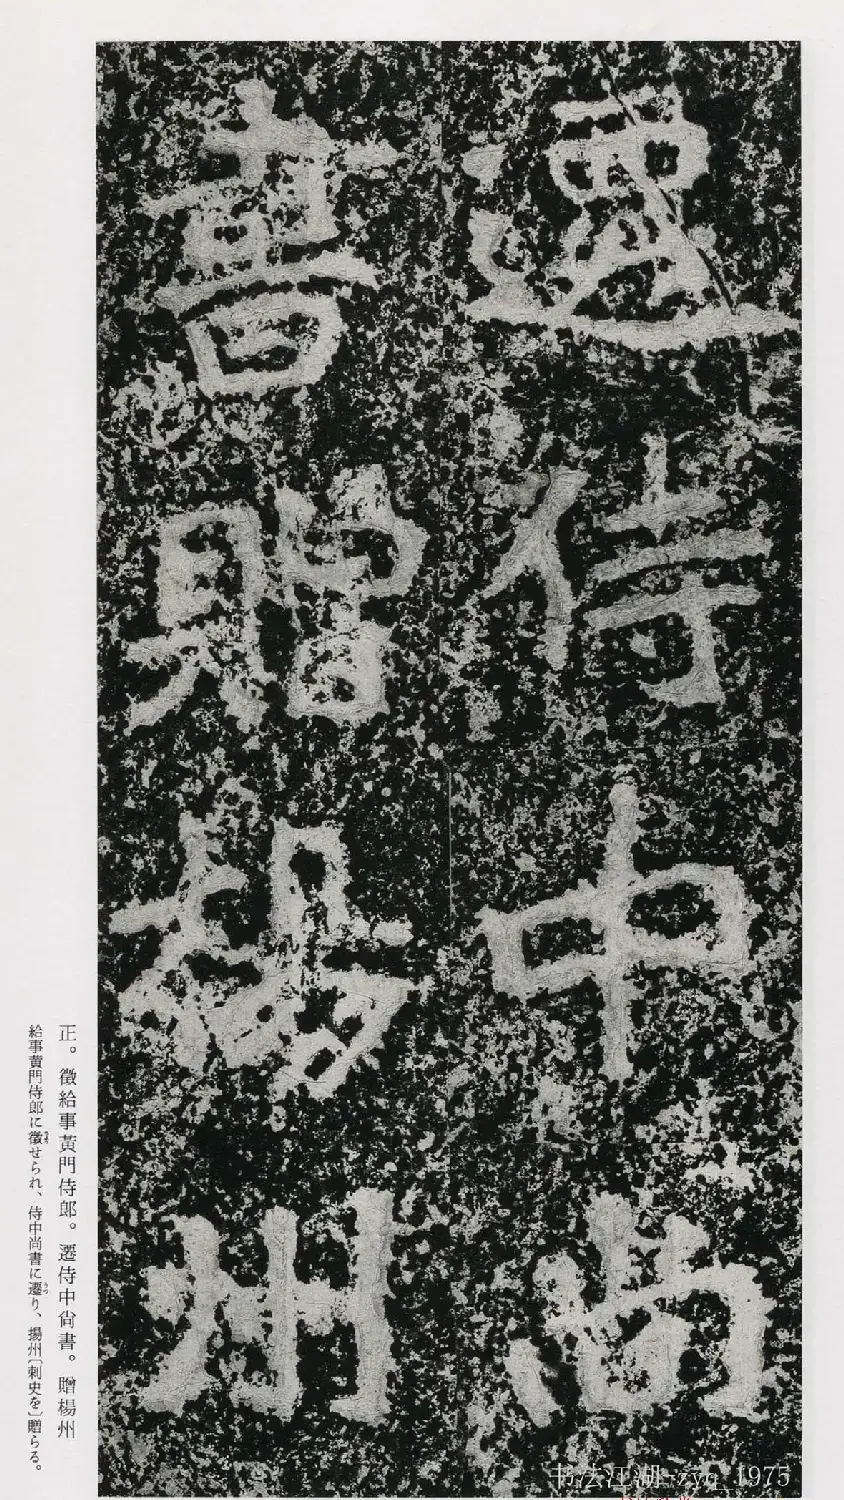 遷侍中尚
書贈楊州
正。徵給事黃門侍郎。遷侍中尙書。贈楊州
給事黃門侍郎に徵せられ、侍中尚書に遷り、揚州〔刺史を〕贈らる。
书法江湖-zyq_1975